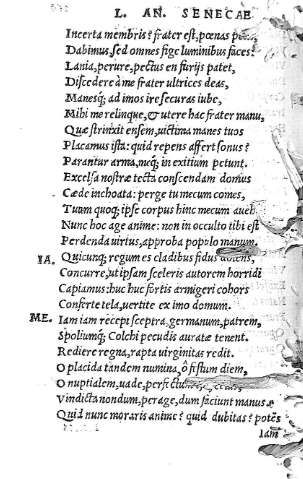 L. AN. SENECAE
Incerta membris? frater est, pœnas petit,
Dabimus, sed omnes fige luminibus faces:
Lania, perure, pectus en furijs patet,
Discedere à me frater ultrices deas,
Manesq; ad imos ire securas iube,
Mihi me relinque, & utere hac frater manu,
Quæ strinxit ensem, uictima manes tuos
Placamus ista: quid repens affert sonus?
Parantur arma, meq; in exitium petunt.
Excelsa nostræ tecta conscendam domus
Cæde inchoata: perge tu mecum comes,
Tuum quoq; ipse corpus hinc mecum aueh
Nunc hoc age anime: non in occulto tibi est
Perdenda uirtus, approba populo manum.
IA. Quicunq; regum es cladibus fidus dolens,
Concurre, ut ipsam sceleris autorem horridi
Capiamus: huc huc fortis armigeri cohors
Conferte tela, uertite ex imo domum.
ME. Iam iam recepi sceptra, germanum, patrem,
Spoliumq; Colchi pecudis auratæ tenent.
Rediere regna, rapta uirginitas redit.
O placida tandem numina, ô festum diem,
O nuptialem, uade, perfectum est scelus,
Vindicta nondum, perage, dum faciunt manus
Quid nunc moraris anime? quid dubitas? potẽs
Iam